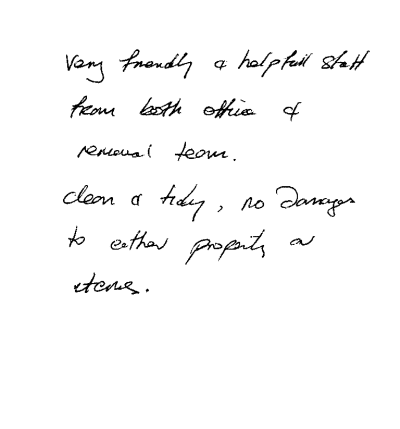 Very friendly & helpfull staff
from both office &
removal team.
clean & tidy, no Damages
to either property or
items.